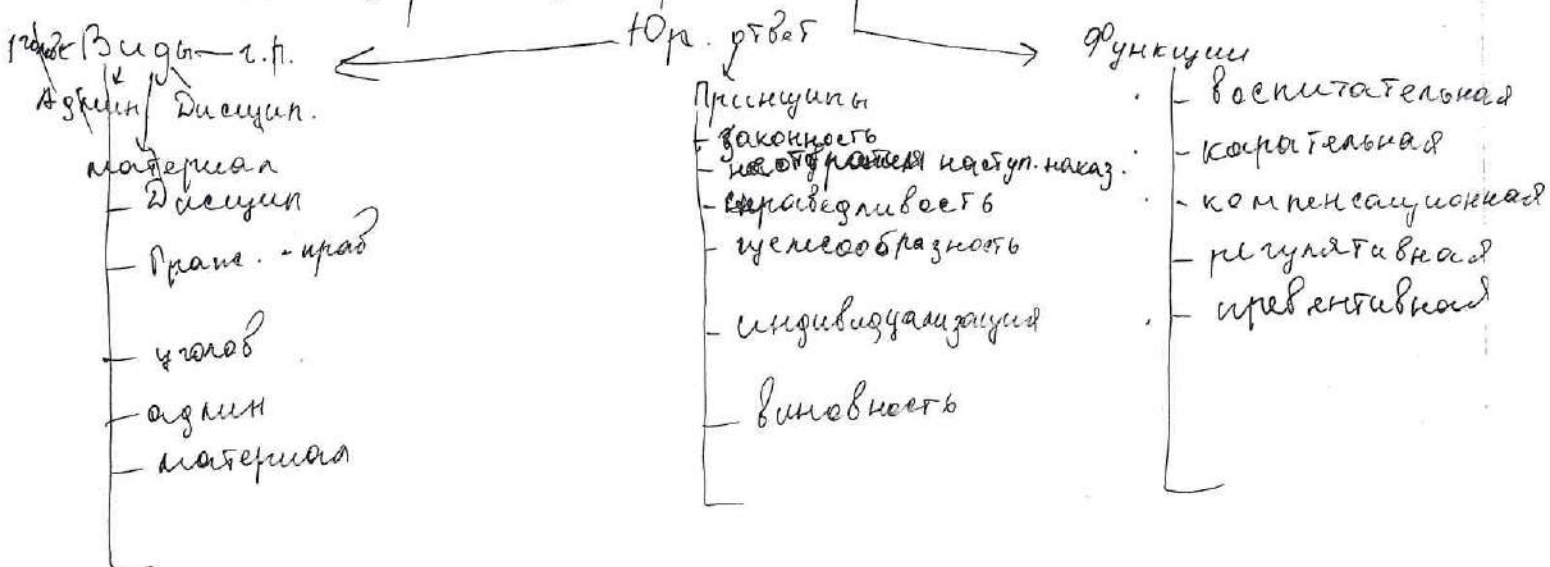 Юр. ответ
Виды — г.п.
Админ Дисцип.
материал
- Дисцип
- Гражс. - прав
- уголов
- админ
- материал
Принципы
- законность
- наступ. наказ.
- справедливость
- целесообразность
- индивидуализация
- виновность
Функции
- воспитательная
- карательная
- компенсационная
- регулятивная
- превентивная